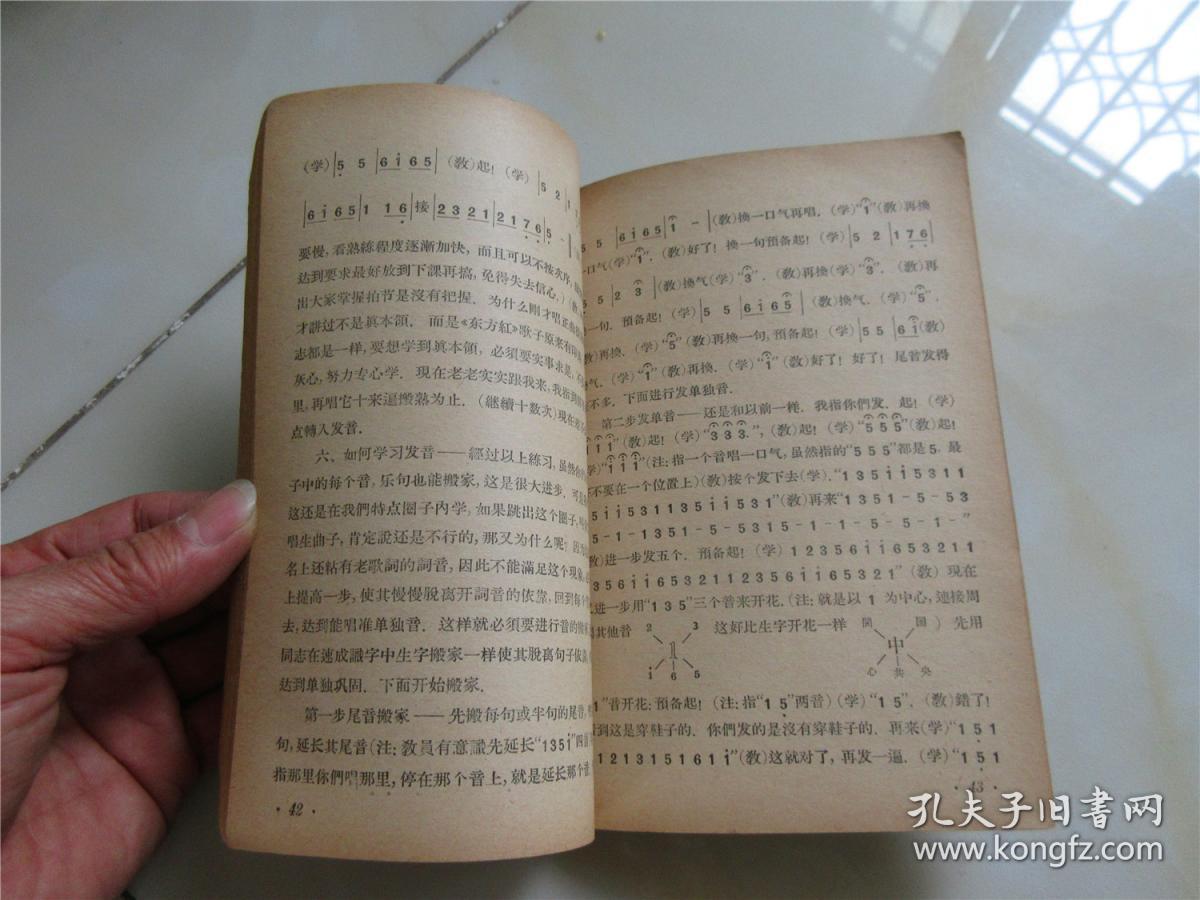 (学)|5 5|6 i 6 5|(教)起! (学)|5 2|1
|6 i 6 5|1 1 6|接|2 3 2 1|2 1 7 6|5 -|
要慢,看熟練程度逐漸加快,而且可以不按次序,
达到要求最好放到下課再搞,免得失去信心.)(教)
出大家掌握拍节是沒有把握. 为什么刚才唱正曲
才講过不是眞本領. 而是《东方紅》歌子原来有
志都是一样,要想学到眞本領,必須要实事求是,不
灰心,努力专心学. 現在老老实实跟我来,我指到
里,再唱它十来遍搬熟为止. (継續十数次)現在
点轉入发音.
六、如何学习发音——經过以上練习,虽然
子中的每个音,乐句也能搬家,这是很大进步. 可是
这还是在我們特点圈子內学,如果跳出这个圈子,
唱生曲子,肯定說还是不行的,那又为什么呢? 因为
名上还粘有老歌詞的詞音,因此不能滿足这个現象,
上提高一步,使其慢慢脫离开詞音的依靠,回到每个
去,达到能唱准单独音. 这样就必須要进行音的
同志在速成識字中生字搬家一样使其脫离句子依
达到单独巩固. 下面开始搬家.
第一步尾音搬家——先搬每句或半句的尾音,
句,延长其尾音(注: 教員有意識先延长“1 3 5 i”四音
指那里你們唱那里,停在那个音上,就是延长那个音
· 42 ·
5 5|6 i 6 5|1 -|(教)換一口气再唱. (学)“1”(教)再換
一口气(学)“1”. (教)好了! 換一句預备起! (学)|5 2|1 7 6|
5 5|2 3|(教)換气(学)“3”. (教)再換(学)“3”. (教)再
一句. 預备起! (学)|5 5|6 i 6 5|(教)換气. (学)“5”.
教)再換. (学)“5”(教)再換一句,預备起! (学)|5 5|6 i(教)
气. (学)“i”(教)再換. (学)“i”(教)好了! 好了! 尾音发得
不多. 下面进行发单独音.
第二步发单音——还是和以前一样. 我指你們发. 起! (学)
1 1 1”(教)起! (学)“3 3 3.”,(教)起! (学)“5 5 5”(教)起!
学)“i i i”(注: 指一个音唱一口气,虽然指的“5 5 5”都是5. 最
不要在一个位置上)(教)按个发下去(学).“1 3 5 i i 5 3 1 1
5 i i 5 3 1 1 3 5 i i 5 3 1”(教)再来“1 3 5 1 - 5 - 5 3
- 5 - 1 - 1 3 5 1 - 5 - 5 3 1 5 - 1 - 1 - 5 - 5 - 1 -”
教)进一步发五个. 預备起! (学) 1 2 3 5 6 i i 6 5 3 2 1 1
3 5 6 i i 6 5 3 2 1 1 2 3 5 6 i i 6 5 3 2 1” (教) 現在
进一步用“1 3 5”三个音来开花. (注: 就是以 1 为中心,連接周
其他音 2 3 1 i 6 5 这好比生字开花一样 国 中 心 共 央 ) 先用
1”音开花: 預备起! (注: 指“1 5”两音)(学)“1 5”. (教)錯了!
到这是穿鞋子的. 你們发的是沒有穿鞋子的. 再来(学)“1 5 1
1 2 1 3 1 5 1 6 1 i”(教)这就对了,再发一遍. (学)“1 5 1
· 43 ·
孔夫子旧书网
www.kongfz.com